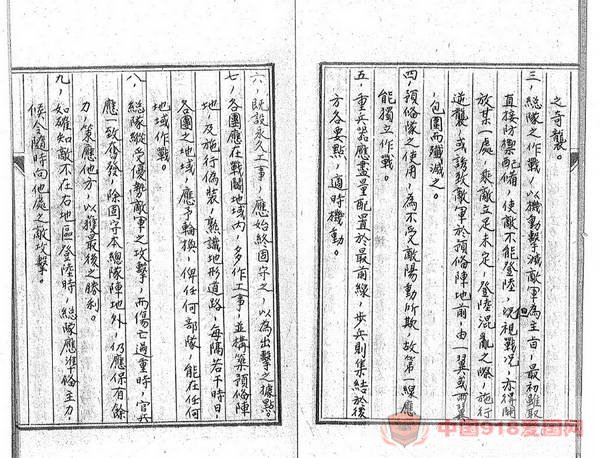 之奇襲。
三、總隊之作戰，以機動擊滅敵軍為主旨，最初雖取
直接防禦配備，使敵不能登陸，但視戰況，亦得開
放某一處，乘敵立足未定，登陸混亂之際，施行
逆襲，或誘致敵軍於預備陣地前，由一翼或兩翼
包圍而殲滅之。
四、預備隊之使用，為不受敵陽動所欺，故第一線應
能獨立作戰。
五、重兵器應盡量配置於最前線，步兵則集結於後
方各要點，適時機動。
六、既設永久工事，應始終固守之，以為出擊之據點。
七、各團應在戰鬪地域內，多作工事，並構築預備陣
地，及施行偽裝，熟識地形道路，每隔若干時日，
各團之地域，應予輪換，俾任何部隊，能在任何
地域作戰。
八、總隊縱受優勢敵軍之攻擊，而傷亡過重時，官兵
應一致奮發，除固守本總隊陣地外，仍應保有餘
力，策應他方，以獲最後之勝利。
九、如確知敵不在右地區登陸時，總隊應準備主力，
候令隨時向他處之敵攻擊。
中国918爱国网